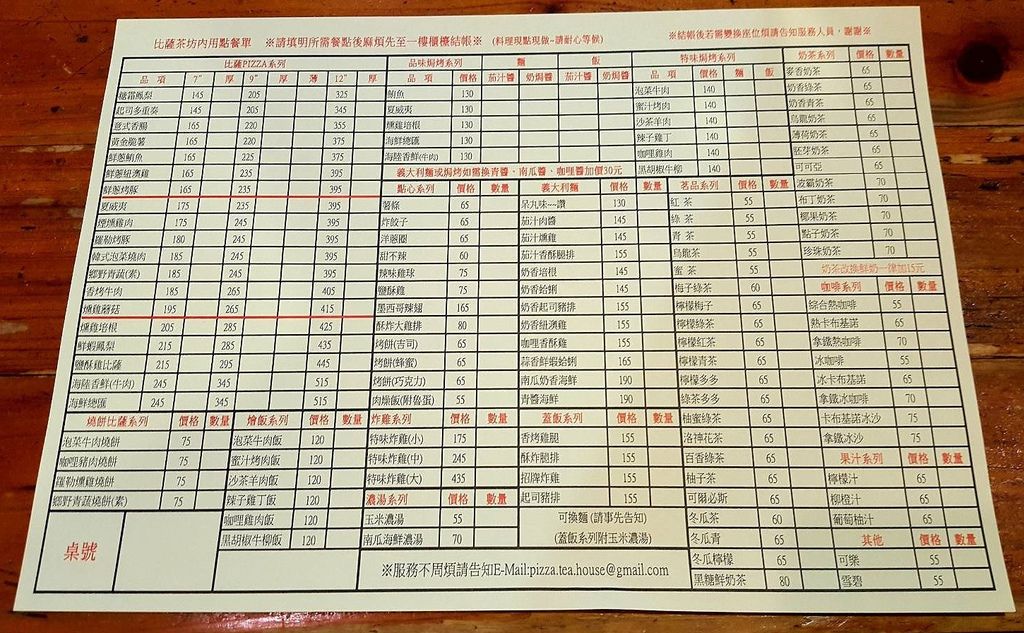 比薩茶坊內用點餐單 ※請填明所需餐點後麻煩先至一樓櫃檯結帳※ (料理現點現做~請耐心等候) ※結帳後若需變換座位煩請告知服務人員,謝謝※
比薩PIZZA系列
品項 7" 厚 9" 厚 薄 12" 厚
楓霜鳳梨 145 205 325
起司多重奏 145 205 345
意式香腸 165 220 355
黃金脆薯 165 220 375
鮮蔥鮪魚 165 225 375
鮮蔥紐澳雞 165 235 395
鮮蔥烤豚 165 235 395
夏威夷 175 235 395
煙燻雞肉 175 245 395
羅勒烤豚 180 245 395
韓式泡菜燒肉 185 245 395
鄉野青蔬(素) 185 245 395
香烤牛肉 185 265 405
燻雞蘑菇 195 265 415
燻雞培根 205 285 425
鮮蝦鳳梨 215 285 435
鹽酥雞比薩 215 295 445
海陸香鮮(牛肉) 245 345 515
海鮮總匯 245 345 515
品味焗烤系列 麵 飯
品項 價格 茄汁醬 奶焗醬 茄汁醬 奶焗醬
鮪魚 130
夏威夷 130
燻雞培根 130
海鮮總匯 130
海陸香鮮(牛肉) 130
特味焗烤系列
品項 價格 麵 飯
泡菜牛肉 140
蜜汁烤肉 140
沙茶羊肉 140
辣子雞丁 140
咖哩雞肉 140
黑胡椒牛柳 140
義大利麵或焗烤如需換青醬、南瓜醬、咖哩醬加價30元
點心系列 價格 數量
薯條 65
炸餃子 65
洋蔥圈 65
甜不辣 60
辣味雞球 75
鹽酥雞 75
墨西哥辣翅 165
酥炸大雞排 80
烤餅(吉司) 65
烤餅(蜂蜜) 65
烤餅(巧克力) 65
肉燥飯(附魯蛋) 55
義大利麵 價格 數量
呆丸味~~讚 130
茄汁肉醬 145
茄汁燻雞 145
茄汁香酥雞 155
奶香培根 145
奶香蛤蜊 145
奶香起司豬排 155
奶香紐澳雞 155
咖哩香酥雞 155
蒜香鮮蝦蛤蜊 165
南瓜奶香海鮮 190
青醬海鮮 190
茗品系列 價格 數量
紅 茶 55
綠 茶 55
青 茶 55
烏龍茶 55
蜜 茶 55
梅子綠茶 60
檸檬梅子 65
檸檬綠茶 65
檸檬紅茶 65
檸檬青茶 65
檸檬多多 65
綠茶多多 65
柚蜜綠茶 65
洛神花茶 65
百香綠茶 65
柚子茶 65
可爾必斯 65
冬瓜茶 60
冬瓜青 65
冬瓜檸檬 65
黑糖鮮奶茶 80
奶茶系列 價格 數量
麥香奶茶 65
奶香綠茶 65
奶香青茶 65
烏龍奶茶 65
薄荷奶茶 65
胚芽奶茶 65
可可亞 65
波霸奶茶 70
布丁奶茶 70
椰果奶茶 70
點子奶茶 70
珍珠奶茶 70
奶茶改換鮮奶一律加15元
咖啡系列 價格 數量
綜合熱咖啡 55
熱卡布基諾 65
拿鐵熱咖啡 65
冰咖啡 55
冰卡布基諾 65
拿鐵冰咖啡 70
卡布基諾冰沙 75
拿鐵冰沙 75
果汁系列 價格 數量
檸檬汁 65
柳橙汁 65
葡萄柚汁 65
其他 價格 數量
可樂 55
雪碧 55
燒餅比薩系列 價格 數量
泡菜牛肉燒餅 75
咖哩豬肉燒餅 75
羅勒燻雞燒餅 75
鄉野青蔬燒餅(素) 75
燴飯系列 價格 數量
泡菜牛肉飯 120
蜜汁烤肉飯 120
沙茶羊肉飯 120
辣子雞丁飯 120
咖哩雞肉飯 120
黑胡椒牛柳飯 120
炸雞系列 價格 數量
特味炸雞(小) 175
特味炸雞(中) 245
特味炸雞(大) 435
濃湯系列 價格 數量
玉米濃湯 55
南瓜海鮮濃湯 70
蓋飯系列 價格 數量
香烤雞腿 155
酥炸腿排 155
招牌炸雞 155
起司豬排 155
可換麵 (請事先告知)
(蓋飯系列附玉米濃湯)
桌號
※服務不周煩請告知E-Mail:pizza.tea.house@gmail.com